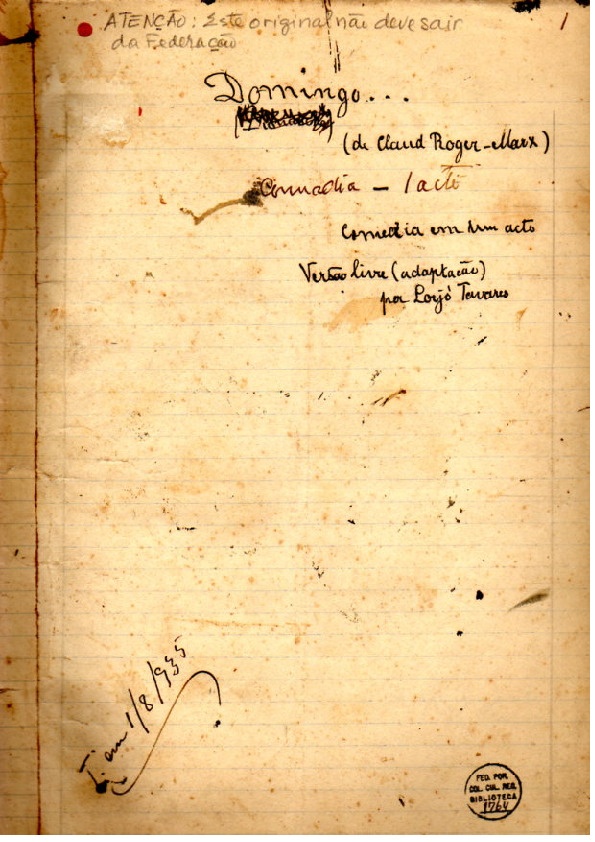 ATENÇÃO: Este original não deve sair
da Federação
1
Domingo...
(de Claud Roger-Marx)
Comedia - 1 acto
Comedia em um acto
Versão livre (adaptação)
por Tavares
em 1/8/935
FED. POR.
COL. CUL. REC.
BIBLIOTECA
1764